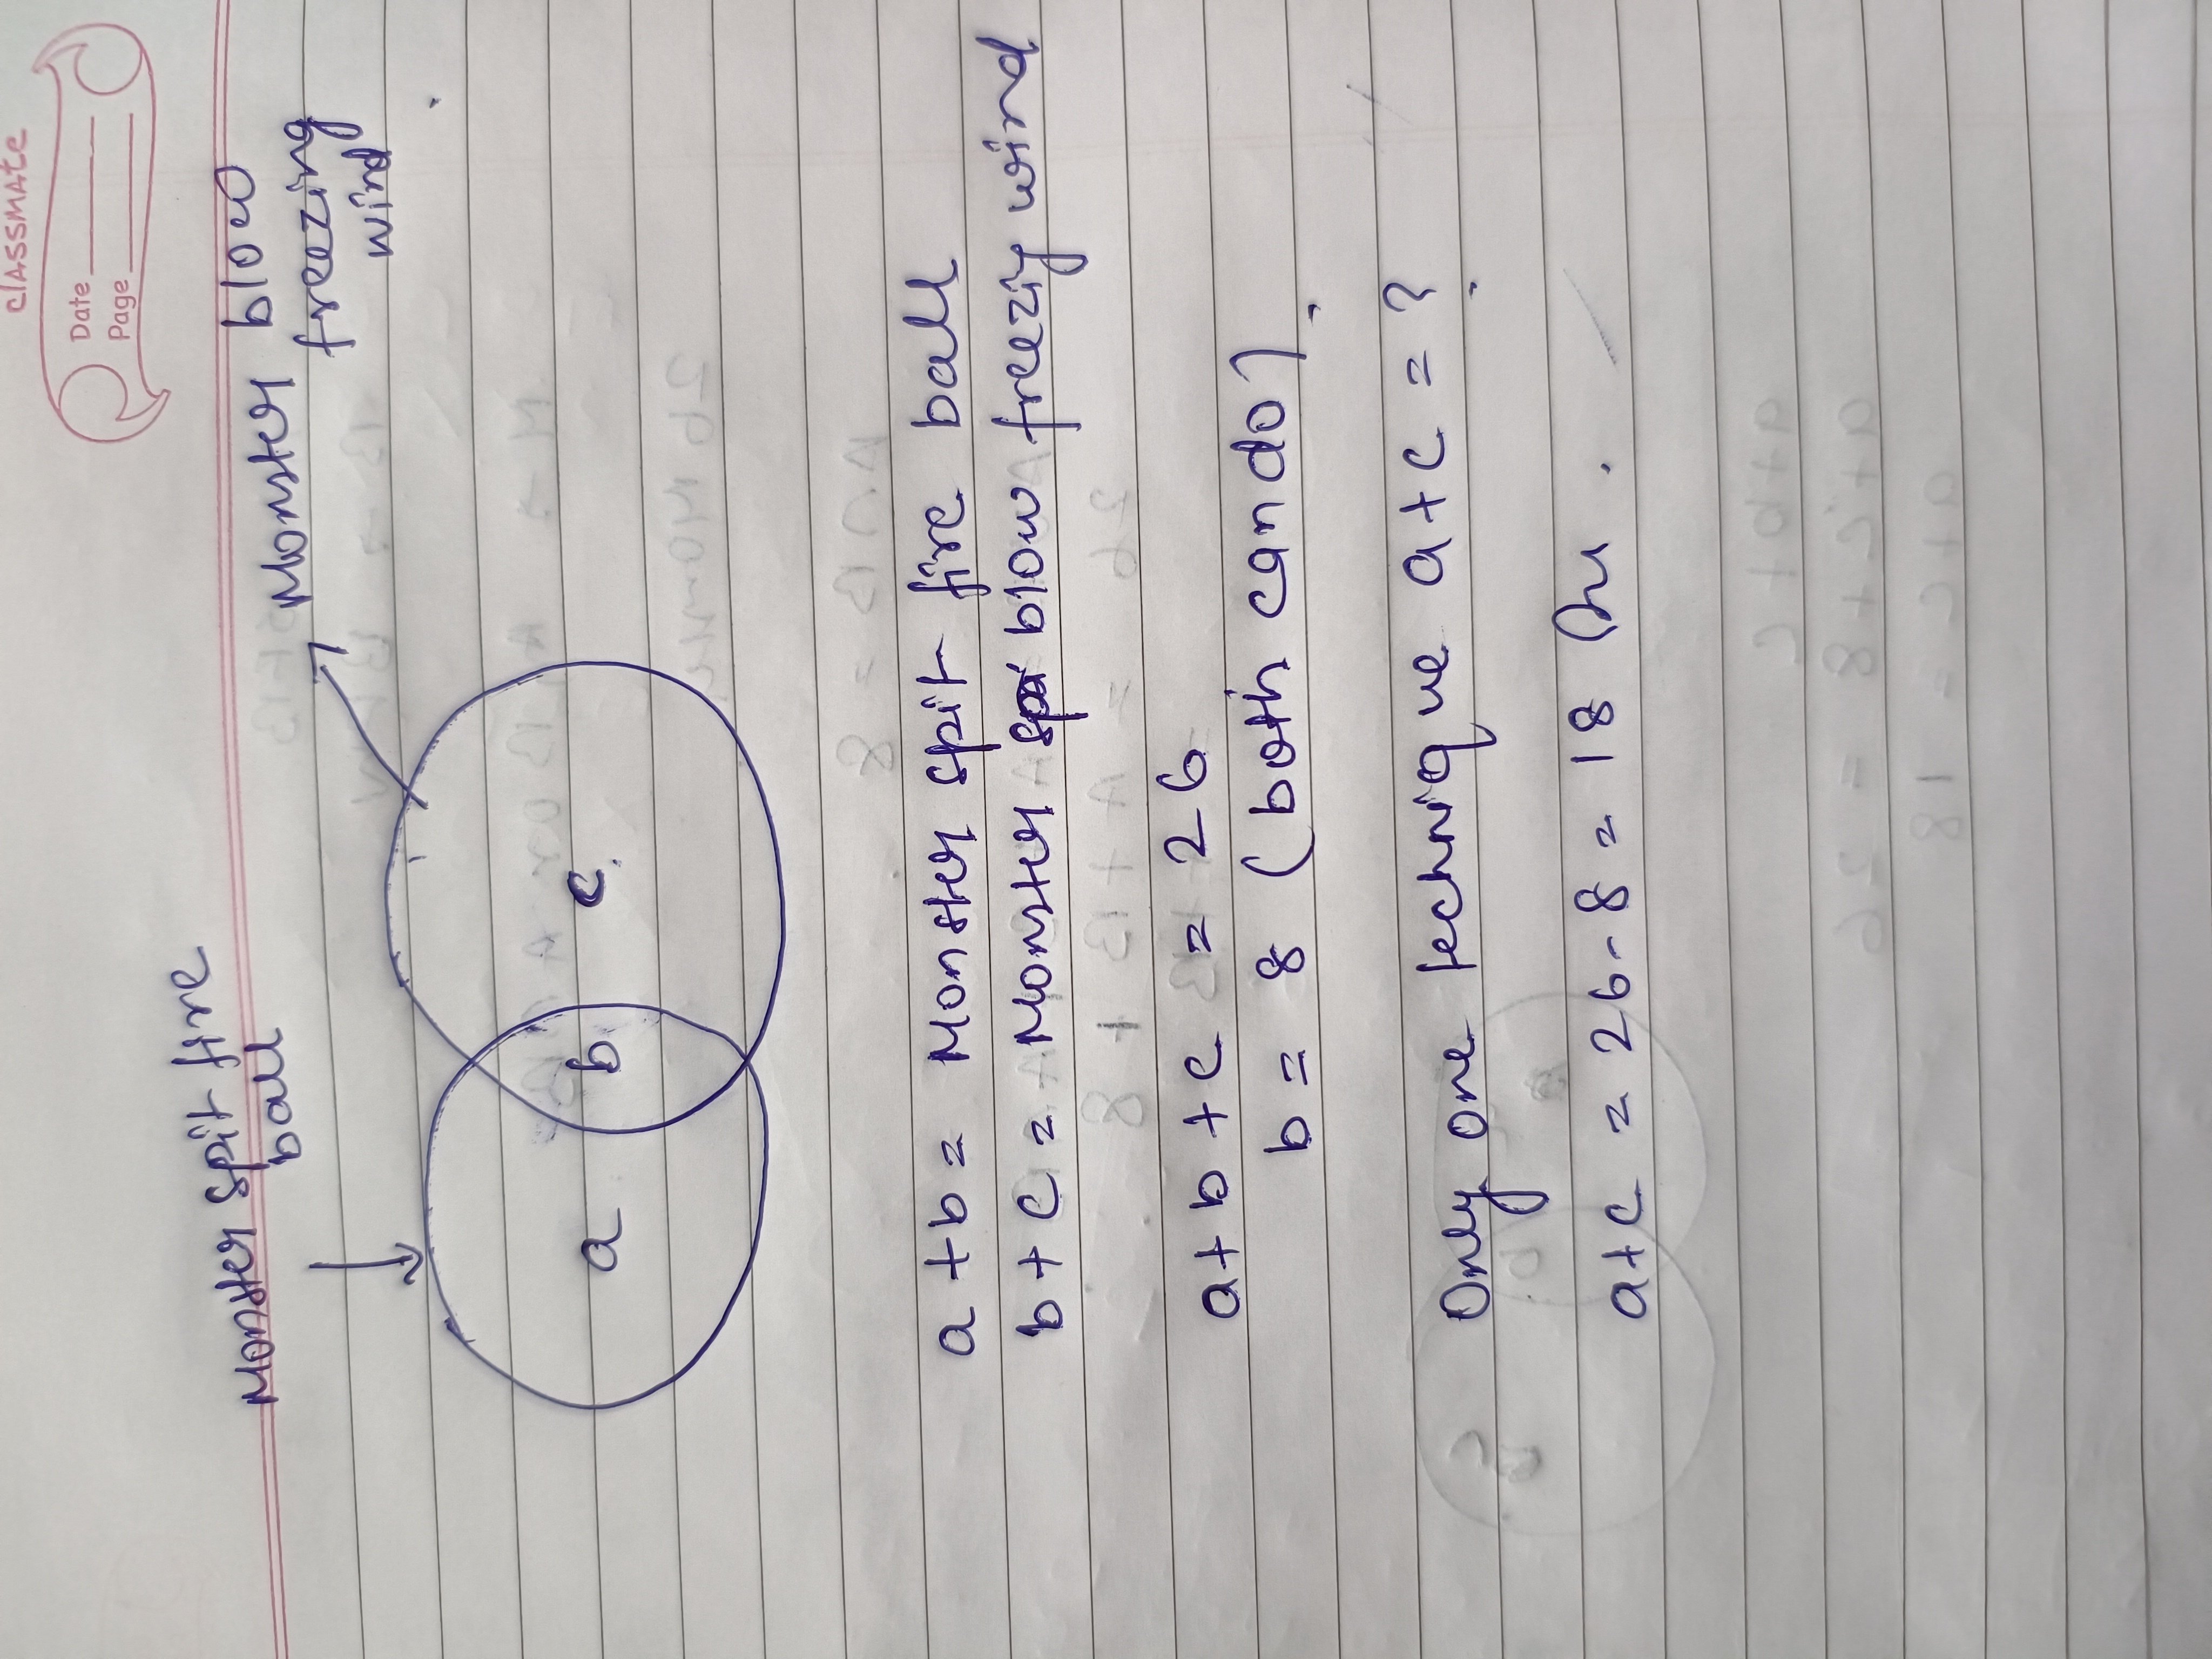 classmate
Date
Page
Monster spit fire
ball
Monster blow
freezing
wind
a
b
c
a + b = Monster spit fire ball
b + c = Monster blow freezing wind
a + b + c = 26
b = 8 (both can do)
Only one technique a + c = ?
a + c = 26 - 8 = 18